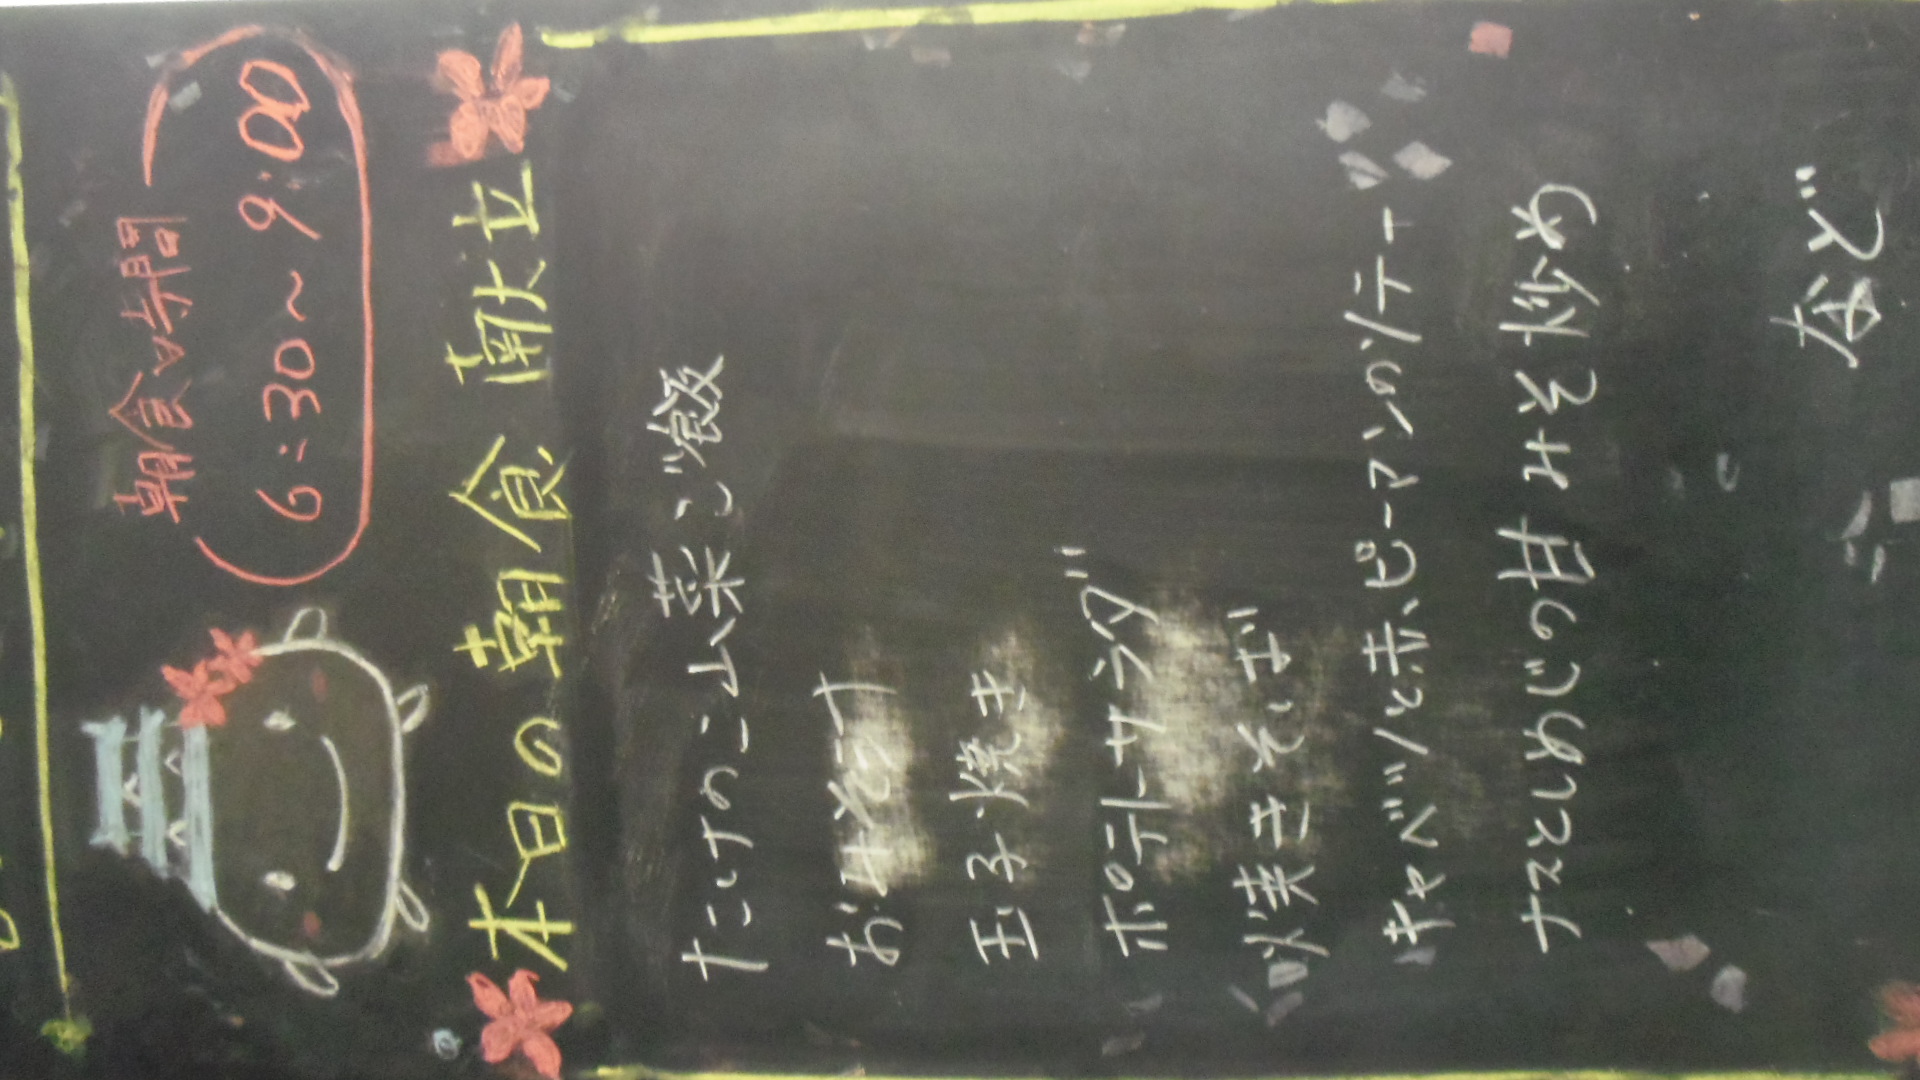 朝食時間
6:30～9:00
本日の朝食 献立
たけのこ山菜ご飯
おみそ汁
玉子焼き
ポテトサラダ
焼きそば
キャベツと赤ピーマンのソテー
ナスとしめじの甘みそ炒め
など